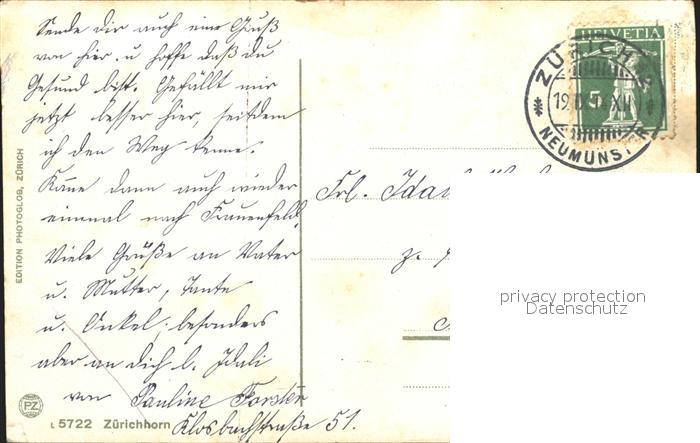 Sende dir auch eine Gruß
von hier u hoffe daß du
Gesund bist. Gefällt mir
jetzt besser hier, seitdem
ich den Weg kenne.
Käme dann auch wieder
einmal nach Frauenfeld,
Viele Grüße an Vater
u. Mutter, Tante
u. Onkel, besonders
aber an dich l. Idali
von Pauline Forster
Klosbachstraße 51.
EDITION PHOTOGLOB, ZÜRICH
PZ
5722 Zürichhorn
HELVETIA
5
ZÜRICH
19.IX.1 XII
NEUMÜNST.
Frl. Ida
z.
privacy protection
Datenschutz